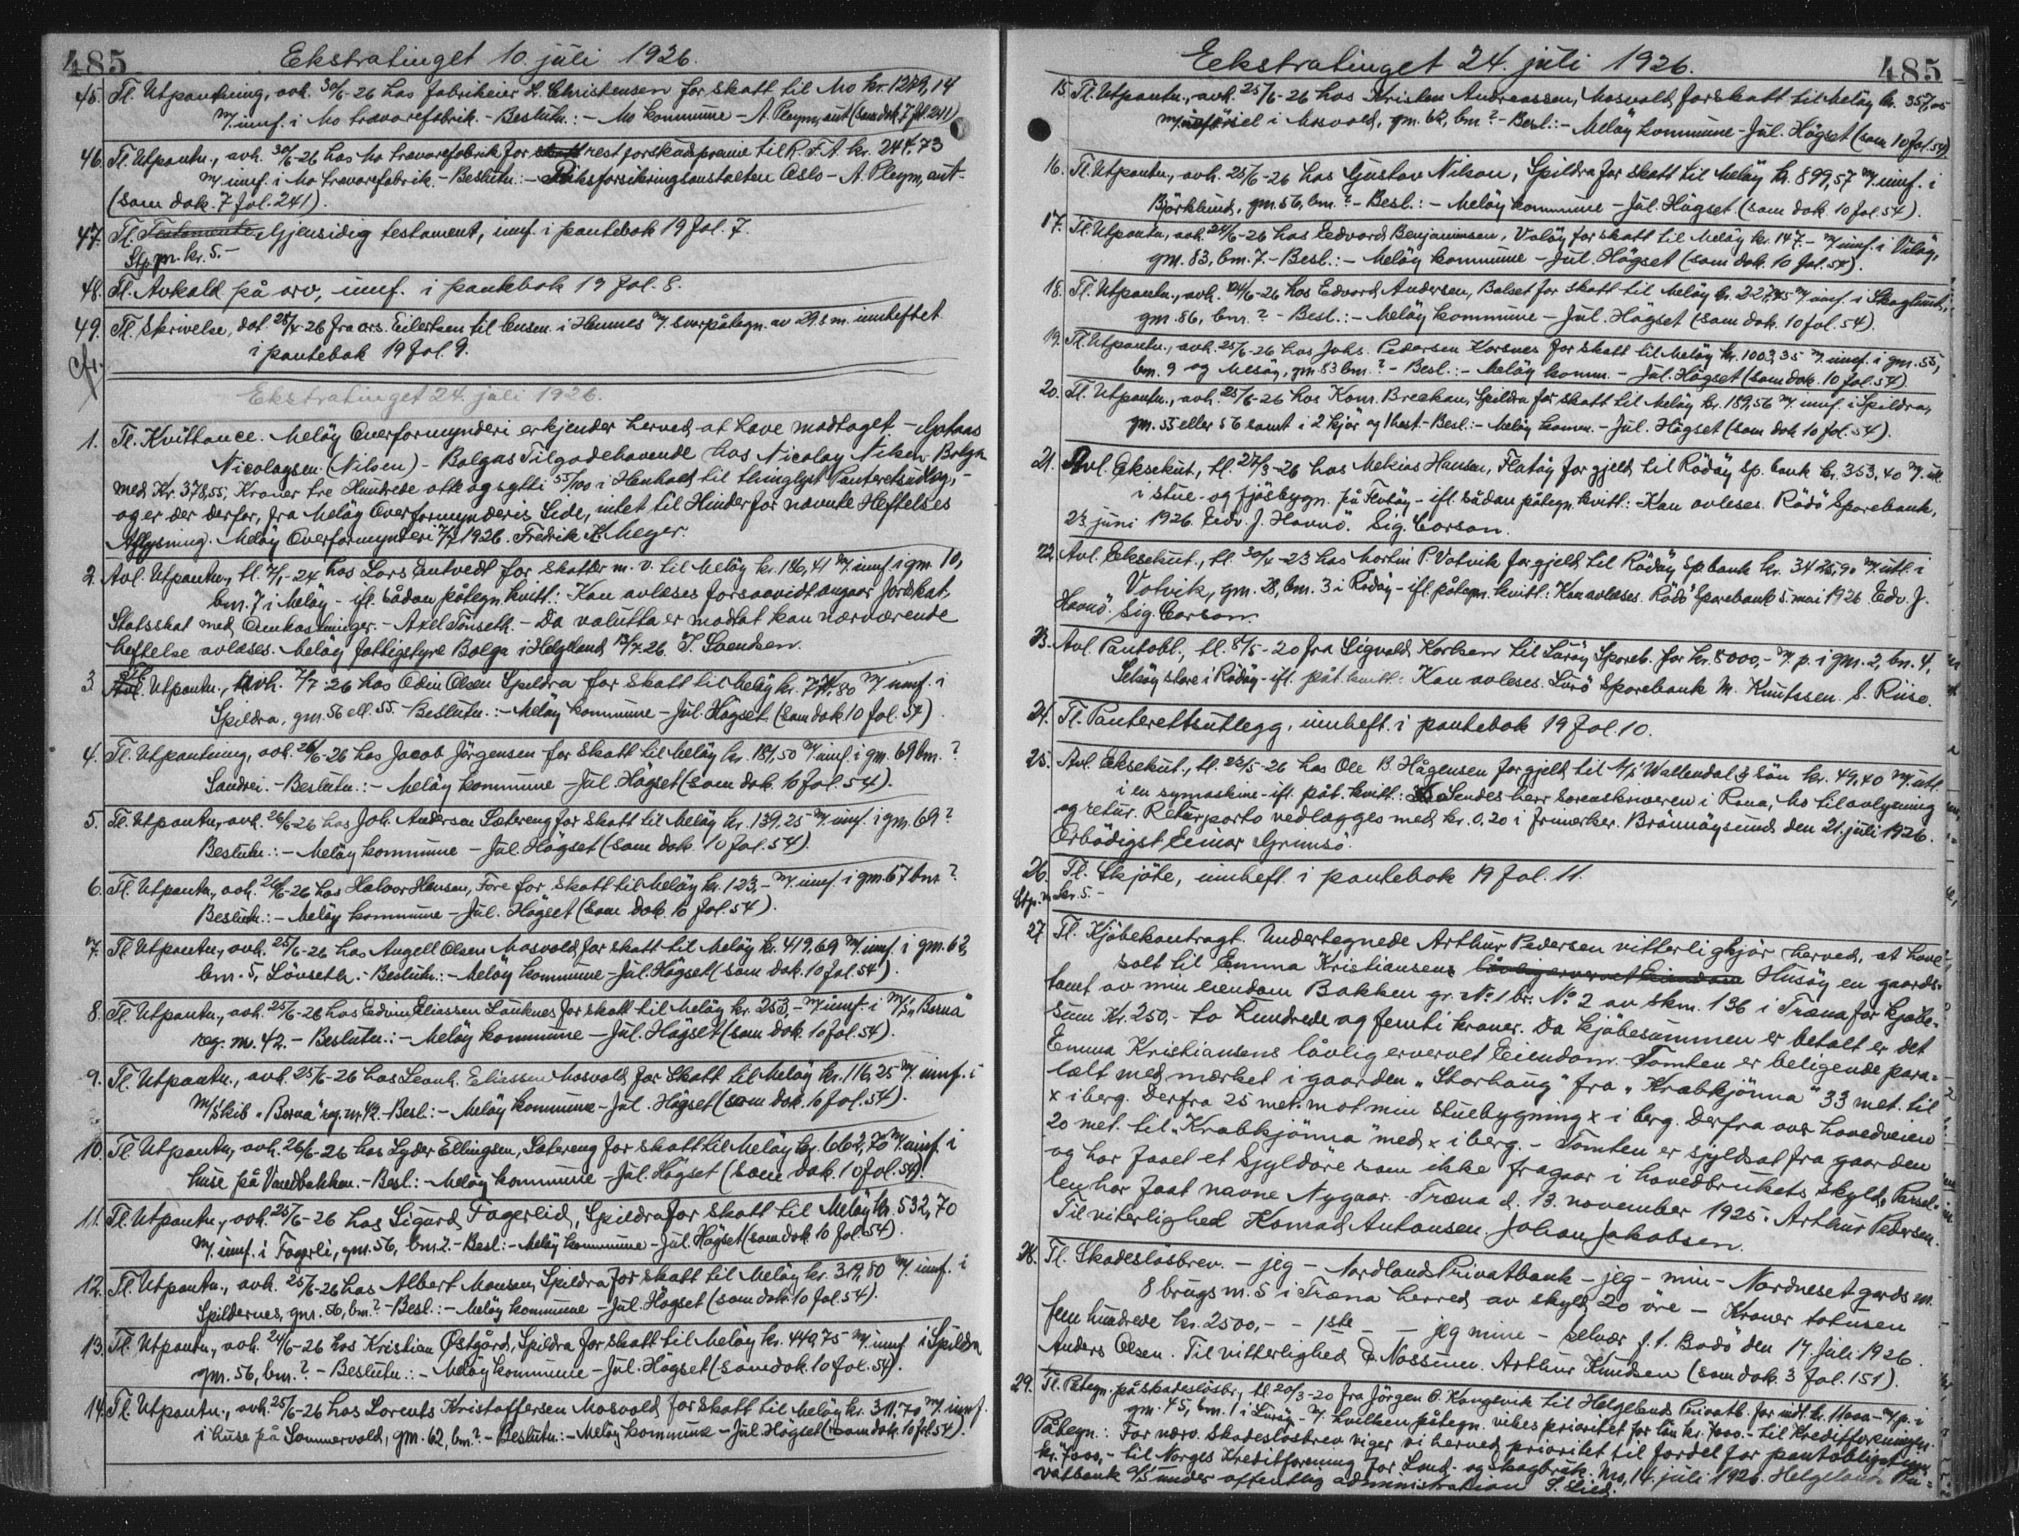 485
Ekstratinget 10. juli 1926.
45. Tl. Utpantning, avh. 30/6-26 hos fabrikeier L. Christensen for skatt til Mo kr. 1279,14
m/ innf. i Mo trævarefabrik. - Beslutn.: - Mo kommune - A. Pleym, aut (som dok. 7 fol. 241)
46. Tl. Utpantn., avh. 30/6-26 hos Mo trævarefabrik for rest forskudspremie til R.F.A. kr. 244.73
m/ innf. i Mo trævarefabrik. - Beslutn.: - Riksforsikringsanstalten Oslo - A. Pleym, aut -
(som dok. 7 fol. 241).
47. Tl. Testamente Gjensidig testament, innf. i pantebok 19 fol. 7.
Stp.m. kr. 5.-
48. Tl. Avkald på arv, innf. i pantebok 19 fol. 8.
49. Tl. Skrivelse, dat. 25/4-26 fra ors. Eilertsen til lensm. i Hemnes m/ svarpåtegn. av 29. s.m. innheftet
i pantebok 19 fol. 9.
Ekstratinget 24. juli 1926.
1. Tl. Kvittance. Meløy Overformynderi erkjender herved at have modtaget -
Nicolaysen (Nilsen) - Bolgas Tilgodehavende hos Nicolay Nilsen Bolga
med Kr. 378,55, Kroner tre Hundrede otte og sytti 55/100 i Henhold til thinglyst Panteretsudlæg, -
og er der derfor, fra Meløy Overformynderis Side, intet til Hinder for nævnte Heftelses
Aflysning. Meløy Overformynderi 7/7 1926. Fredrik K. Meyer.
2. Avl. Utpantn., tl. 7/1-24 hos Lars Entvedt for skatter m.v. til Meløy kr. 106,41 m/ innf. i gnr. 10,
bnr. 7 i Meløy - ifl. sådan påtegn. kvitt.: Kan avlæses forsaavidt angaar Jordskat,
Statsskat med Omkostninger. - Axel Tønseth. - Da valutta er modtat kan nærværende
heftelse avlæses. Meløy fattigstyre Bolga i Helgeland 13/7.26. T. Svendsen.
3. Tl. Utpantn., avh. 7/7-26 hos Odin Olsen Spildra for skatt til Meløy kr. 774.80 m/ innf. i
Spildra, gnr. 56 ell. 55. Beslutn.: - Meløy kommune - Jul. Høgset (som dok 10 fol. 54)
4. Tl. Utpantning, avh. 26/6-26 hos Jacob Jørgensen for skatt til Meløy kr. 181,50 m/ innf. i gnr. 69 bnr. ?
Sandrei. - Beslutn.: - Meløy kommune - Jul. Høgset (som dok. 10 fol. 54).
5. Tl. Utpantn., avh. 26/6-26 hos Joh. Andersen Sætereng for skatt til Meløy kr. 139,25 m/ innf. i gnr. 69 ?
Beslutn.: - Meløy kommune - Jul. Høgset (som dok. 10 fol. 54).
6. Tl. Utpantn., avh. 26/6-26 hos Halvor Hansen, Fore for skatt til Meløy kr. 123,- m/ innf. i gnr. 67 bnr ?
Beslutn.: - Meløy kommune - Jul. Høgset (som dok. 10 fol. 54).
7. Tl. Utpantn., avh. 25/6-26 hos Angell Olsen Mosvold for skatt til Meløy kr. 419,69 m/ innf. i gnr. 62,
bnr. 5, Løvseth. - Beslutn.: - Meløy kommune - Jul. Høgset (som dok. 10 fol. 54).
8. Tl. Utpantn., avh. 25/6-26 hos Edvin Eliassen Lauknes for skatt til Meløy kr. 253,- m/ innf. i m/s. "Borna"
reg. nr. 42. - Beslutn.: - Meløy kommune - Jul. Høgset (som dok. 10 fol. 54).
9. Tl. Utpantn., avh. 25/6-26 hos Leonh. Eliassen Mosvold for skatt til Meløy kr. 116,25 m/ innf. i
m/skib "Borna" reg. nr 42. - Besl.: - Meløy kommune - Jul. Høgset (som dok. 10 fol. 54).
10. Tl. Utpantn., avh. 26/6-26 hos Lyder Ellingsen, Sætereng for skatt til Meløy kr. 662,70 m/ innf. i
huse på Vandbakken. - Besl.: - Meløy kommune - Jul. Høgset (som dok. 10 fol. 54).
11. Tl. Utpantn., avh. 25/6-26 hos Sigurd Fagerlid, Spildra for skatt til Meløy kr. 532,70
m/ innf. i Fagerli, gnr. 56, bnr. ?. - Besl.: - Meløy kommune - Jul. Høgset (som dok. 10 fol. 54).
12. Tl. Utpantn., avh. 25/6-26 hos Albert Monsen, Spildra for skatt til Meløy kr. 319,50 m/ innf. i
Spildernes, gnr. 56, bnr. ? - Besl.: - Meløy kommune - Jul. Høgset (som dok. 10 fol. 54).
13. Tl. Utpantn., avh. 24/6-26 hos Kristian Østgård, Spildra for skatt til Meløy kr. 449,75 m/ innf. i Spildra
gnr. 56, bnr. ? - Beslutn.: - Meløy kommune - Jul. Høgset (som dok. 10 fol. 54).
14. Tl. Utpantn., avh. 25/6-26 hos Lorents Kristoffersen Mosvold for skatt til Meløy kr. 311,70 m/ innf.
i huse på Sommervold, gnr. 62, bnr. ? - Beslutn.: - Meløy kommune - Jul. Høgset (som dok. 10 fol. 54).
Ekstratinget 24. juli 1926.
485
15. Tl. Utpantn., avh. 25/6-26 hos Kristen Andreassen, Mosvold for skatt til Meløy kr. 357,05
m/ i Mosvold, gnr. 62, bnr. ? - Besl.: - Meløy kommune - Jul. Høgset (som 10 fol. 54)
16. Tl. Utpantn., avh. 25/6-26 hos Gustav Nilsen, Spildra for skatt til Meløy kr. 899,57 m/ innf. i
Bjørklund, gnr. 56, bnr. ? - Besl.: - Meløy kommune - Jul. Høgset (som dok. 10 fol. 54).
17. Tl. Utpantn., avh. 24/6-26 hos Edvard Benjaminsen, Valøy for skatt til Meløy kr. 147.- m/ innf. i Valøy,
gnr. 83, bnr. 7. - Besl.: - Meløy kommune - Jul. Høgset (som dok. 10 fol. 54).
18. Tl. Utpantn., avh. 24/6-26 hos Edvard Andersen, Bolset for skatt til Meløy kr. 227,45 m/ innf. i Skoglund,
gnr. 86, bnr. ? - Besl.: - Meløy kommune - Jul. Høgset (som dok. 10 fol. 54).
19. Tl. Utpantn., avh. 25/6-26 hos Johs. Pedersen Korsnes for skatt til Meløy kr. 1003,35 m/ innf. i gnr. 55,
bnr. 9 og Mesøy, gnr. 83 bnr. ? - Besl.: - Meløy komm. - Jul. Høgset (som dok. 10 fol. 54)
20. Tl. Utpantn., avh. 25/6-26 hos Konr. Breckan, Spildra for skatt til Meløy kr. 189,56 m/ innf. i Spildra,
gnr. 55 eller 56 samt i 2 kjør og 1 hest. - Besl.: - Meløy komm. - Jul. Høgset (som dok 10 fol. 54).
21. Avl. Eksekut., tl. 27/3-26 hos Mekias Hansen, Flatøy for gjeld til Rødøy sp. bank kr. 353,40 m/ utl.
i stue- og fjøsbygn. på Flatøy - ifl. sådan påtegn. kvitt.: Kan avleses. Rødø Sparebank,
23 juni 1926. Edv. J. Havnø. Sig. Carson.
22. Avl. Eksekut., tl. 30/4-23 hos Martin P. Vatvik for gjeld til Rødøy Spbank kr. 3426,90 m/ utl. i
Vatvik, gnr. 28, bnr. 3 i Rødøy - ifl. påtegn. kvitt.: Kan avleses. Rødø Sparebank 5. mai 1926. Edv. J.
Havnø. Sig. Carson.
23. Avl. Pantobl., tl. 8/5-20 fra Sigvald Karlsen til Lurøy Spareb. for kr. 8000,- m/ p. i gnr. 2, bn. 4,
Selsøy store i Rødøy - ifl. påt. kvitt.: Kan avleses. Lurø Sparebank M. Knutssen. S. Riise.
24. Tl. Panterettsutlegg, innheft. i pantebok 19 fol. 10.
25. Avl. Eksekut., tl. 23/5-26 hos Ole B. Hågensen for gjeld til A/s Wallendal & Søn kr. 49,40 m/ utl.
i en symaskine - ifl. påt. kvitt.: Sendes herr Sorenskriveren i Rana, Mo til avlysning
og retur. Returporto vedlægges med kr. 0.20 i frimerker. Brønnøysund den 21. juli 1926.
Ærbødigst Einar Grimsø.
26. Tl. Skjøte, innheft i pantebok 19 fol. 11.
Stp.m. kr. 5.-
27. Tl. Kjøbekontragt. Undertegnede Arthur Pedersen vitterligkjør herved, at have
solt til Emma Kristiansens lovlig ervervet Eiendom Husøy en gaards-
tomt av min eiendom Bakken gr. No 1 br. No 2 av skm. 136 i Træna for kjøbe-
sum Kr. 250,- to hundrede og femti kroner. Da kjøbesummen er betalt er det
Emma Kristiansens låvlig ervervet Eiendom. Tomten er beligende para-
lælt med mærket i gaarden "Storhaug" fra "Krabkjønna" 33 met. til
x i berg. Derfra 25 met. mot min stuebygning x i berg. Derfra over hovedveien
20 met. til "Krabkjønna" med x i berg. - Tomten er skyldsat fra gaarden
og har faaet et Skyldøre som ikke fragaar i hovedbrukets skyld. Parsel-
len har faat navne Nygaar. Træna d. 13. november 1925. Arthur Pedersen.
Til viterlighed Konrad Antonsen. Johan Jakobsen.
28. Tl. Skadesløsbrev. - jeg - Nordlands Privatbank - jeg - min - Nordneset gards nr.
8 brugs nr. 5 i Træna herred av skyld 20 øre - Kroner totusen
fem hundrede kr. 2500,- - 1ste - - jeg mine - Selvær p.t. Bodø den 17. juli 1926.
Anders Olsen. Til vitterlighed D. Nossumn. Arthur Knudsen (som dok. 3 fol. 151).
29. Tl. Påtegn. på skadesløsbr., tl. 20/3-20 fra Jørgen O. Kongsvik til Helgelands Privatb. for intil kr. 11000.- m/ p. i
gnr. 45, bnr. 1 i Lurøy - m/ hvilken påtegn. vikes prioritet for lån kr. 7000.- til Kreditforeningen.
Påtegn.: For nærv. skadesløsbrev viger vi herved prioritet til fordel for pantobligation
kr. 7000,- til Norges Kreditforening for Land- og skogbruk. Mo, 14. juli 1926. Helgelands Pri-
vatbank A/S under offentlig administration S. Lied.